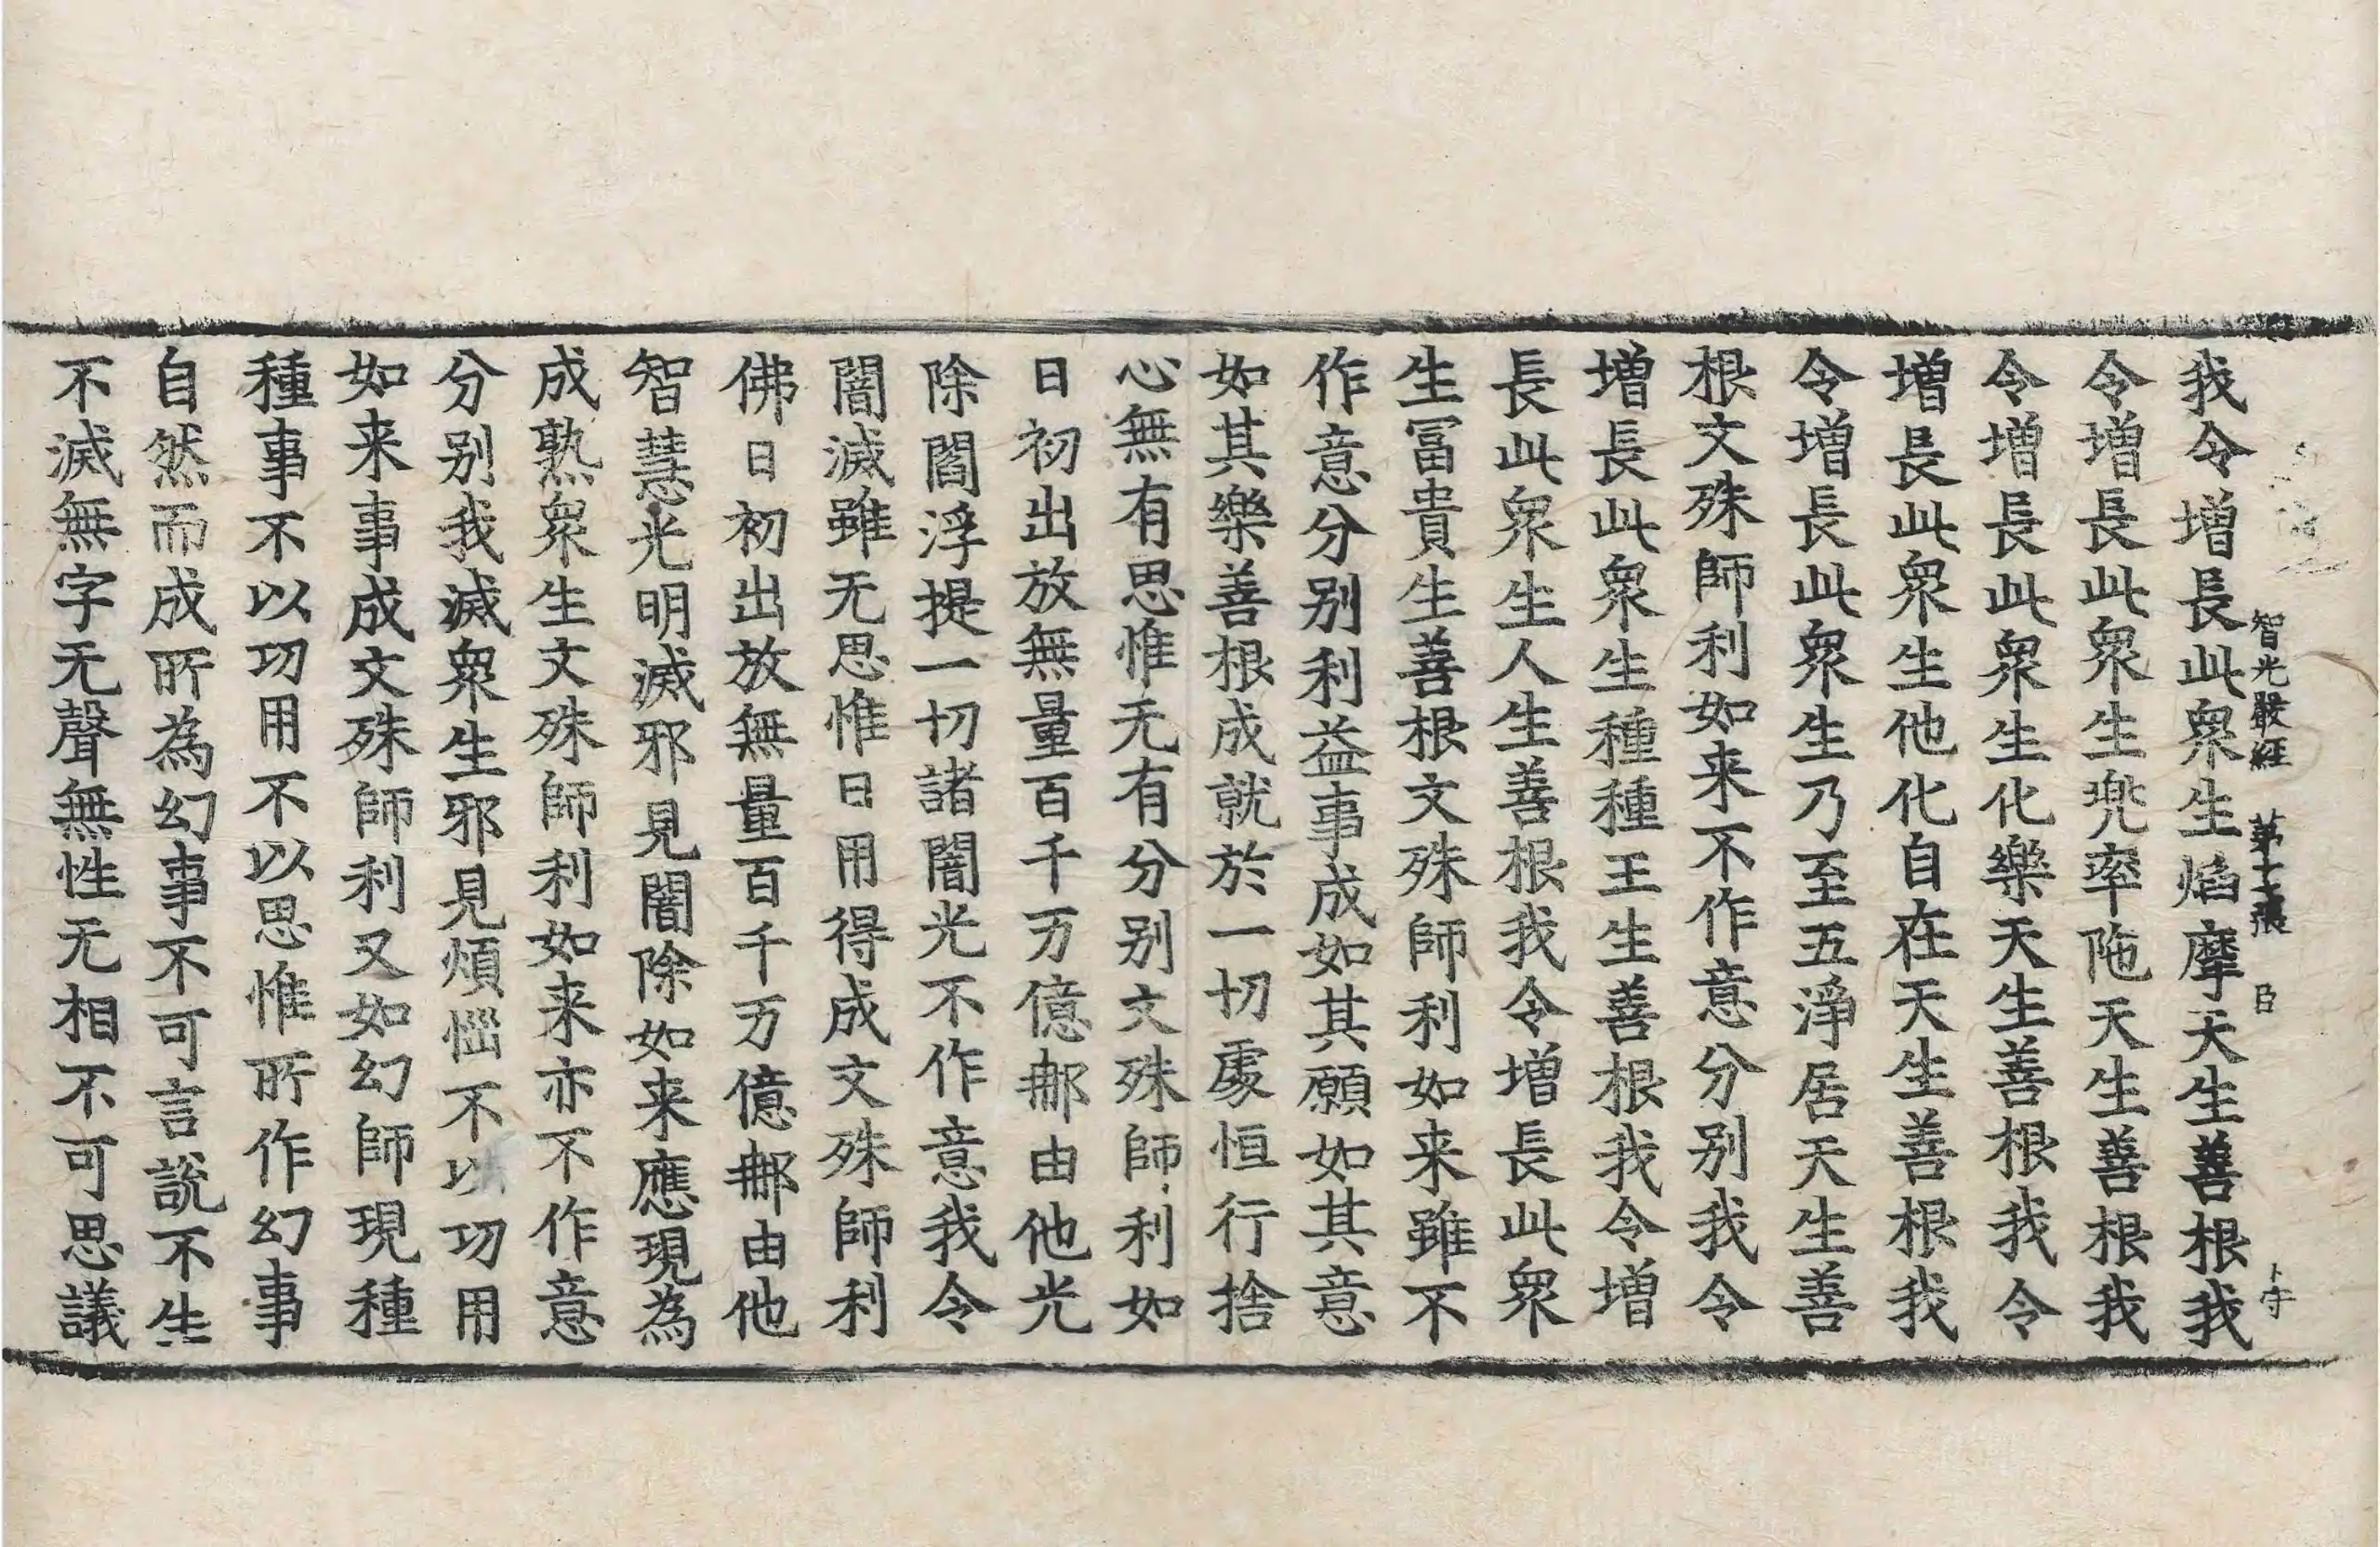 智光嚴經 第十張 臣
我令增長此衆生焰摩天生善根我
令增長此衆生兜率陁天生善根我
令增長此衆生化樂天生善根我令
增長此衆生他化自在天生善根我
令增長此衆生乃至五淨居天生善
根文殊師利如来不作意分别我令
增長此衆生種種王生善根我令增
長此衆生人生善根我令增長此衆
生冨貴生善根文殊師利如来雖不
作意分别利益事成如其願如其意
如其樂善根成就於一切處恒行捨
心無有思惟无有分别文殊師利如
日初出放無量百千万億那由他光
除閻浮提一切諸闇光不作意我令
闇滅雖无思惟日用得成文殊師利
佛日初出放無量百千万億那由他
智慧光明滅邪見闇除如来應現為
成熟衆生文殊師利如来亦不作意
分别我滅衆生邪見煩惱不以功用
如来事成文殊師利又如幻師現種
種事不以功用不以思惟所作幻事
自然而成所為幻事不可言說不生
不滅無字无聲無性无相不可思議